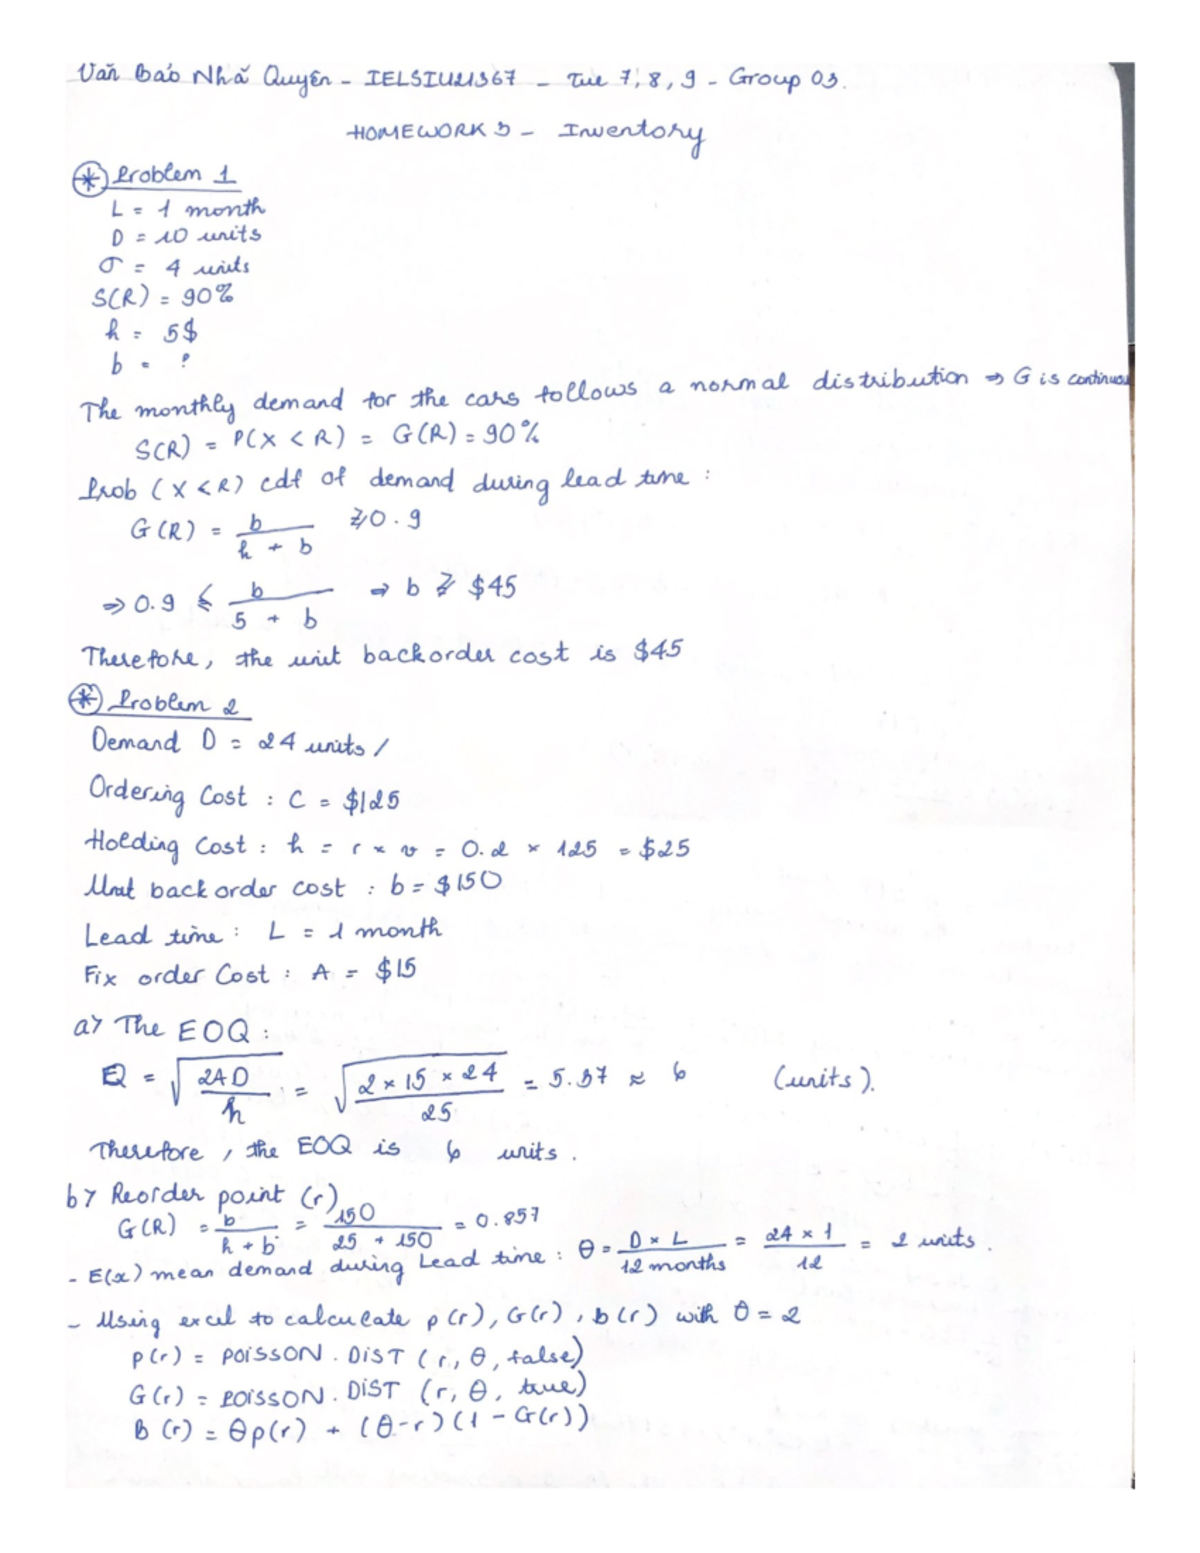 Văn Bảo Nhã Quyên - IELSIU21367 - Tue 7, 8, 9 - Group 03.
HOMEWORK 3 - Inventory
* Problem 1
L = 1 month
D = 10 units
σ = 4 units
S(R) = 90%
h = 5$
b = ?
The monthly demand for the cars follows a normal distribution ⇒ G is continuous
S(R) = P(X < R) = G(R) = 90%
Prob (X < R) cdf of demand during lead time :
G(R) = b / (h + b) ≥ 0.9
⇒ 0.9 ≤ b / (5 + b) ⇒ b ≥ $45
Therefore, the unit backorder cost is $45
* Problem 2
Demand D = 24 units /
Ordering Cost : C = $125
Holding Cost : h = r × v = 0.2 × 125 = $25
Unit back order cost : b = $150
Lead time : L = 1 month
Fix order Cost : A = $15
a> The EOQ :
Q = √(2AD / h) = √(2 × 15 × 24 / 25) = 5.37 ≈ 6 (units).
Therefore, the EOQ is 6 units.
b> Reorder point (r)
G(R) = b / (h + b) = 150 / (25 + 150) = 0.857
- E(x) mean demand during Lead time : θ = D × L / 12 months = 24 × 1 / 12 = 2 units.
- Using excel to calculate p(r), G(r), b(r) with θ = 2
p(r) = POISSON.DIST (r, θ, false)
G(r) = POISSON.DIST (r, θ, true)
B(r) = θp(r) + (θ-r)(1 - G(r))